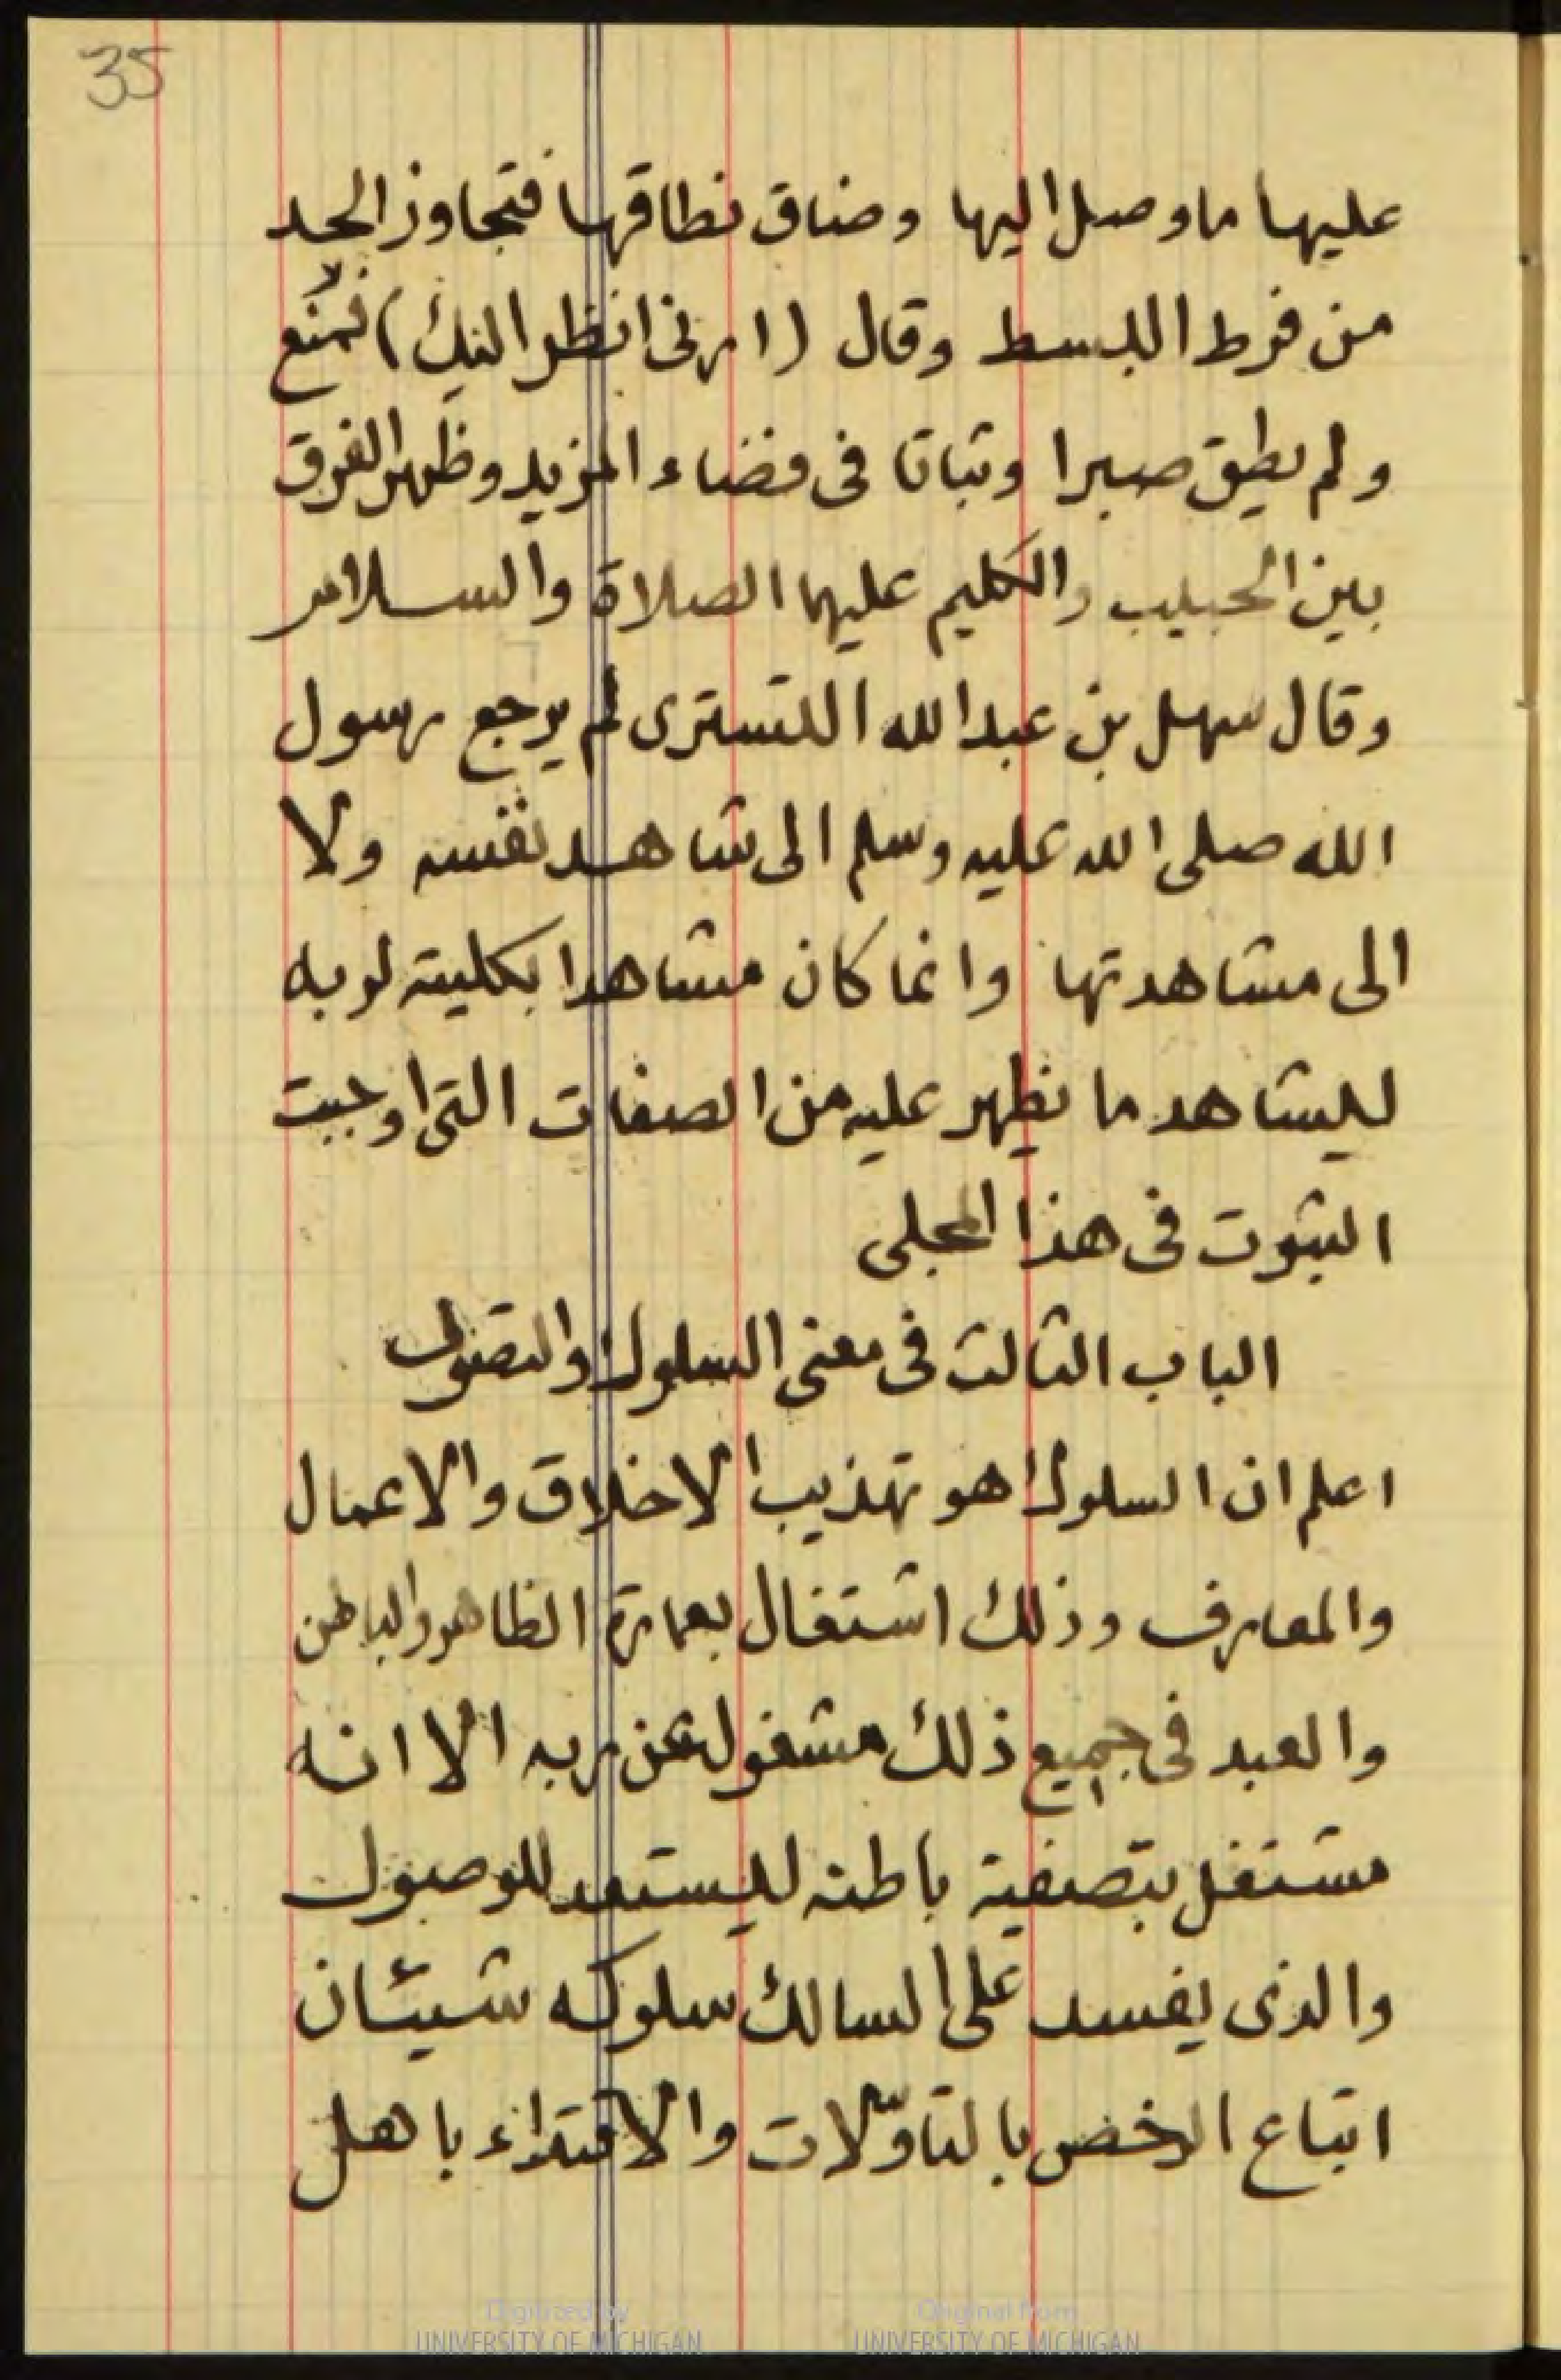 35
عليها ما وصل اليها وضاق نطاقها فتجاوز الحد
من فرط البسط وقال (ارنى انظر اليك) فمنع
ولم يطق صبرا وثباتا فى فضاء المزيد وظهر الفرق
بين الحبيب والكليم عليهما الصلاة والسلام
وقال سهل بن عبد الله التسترى لم يرجع رسول
الله صلى الله عليه وسلم الى شاهد نفسه ولا
الى مشاهدتها وانما كان مشاهدا بكليته لربه
ليشاهد ما يظهر عليه من الصفات التى اوجبت
الثبوت فى هذا المجلى
الباب الثالث فى معنى السلوك والتصوف
اعلم ان السلوك هو تهذيب الاخلاق والاعمال
والمعارف وذلك اشتغال بعمارة الظاهر والباطن
والعبد فى جميع ذلك مشغول عن ربه الا انه
مشتغل بتصفية باطنه ليستعد للوصول
والذى يفسد على السالك سلوكه شيئان
اتباع الرخص بالتاوّلات والاقتداء باهل
Digitized by
UNIVERSITY OF MICHIGAN
Original from
UNIVERSITY OF MICHIGAN